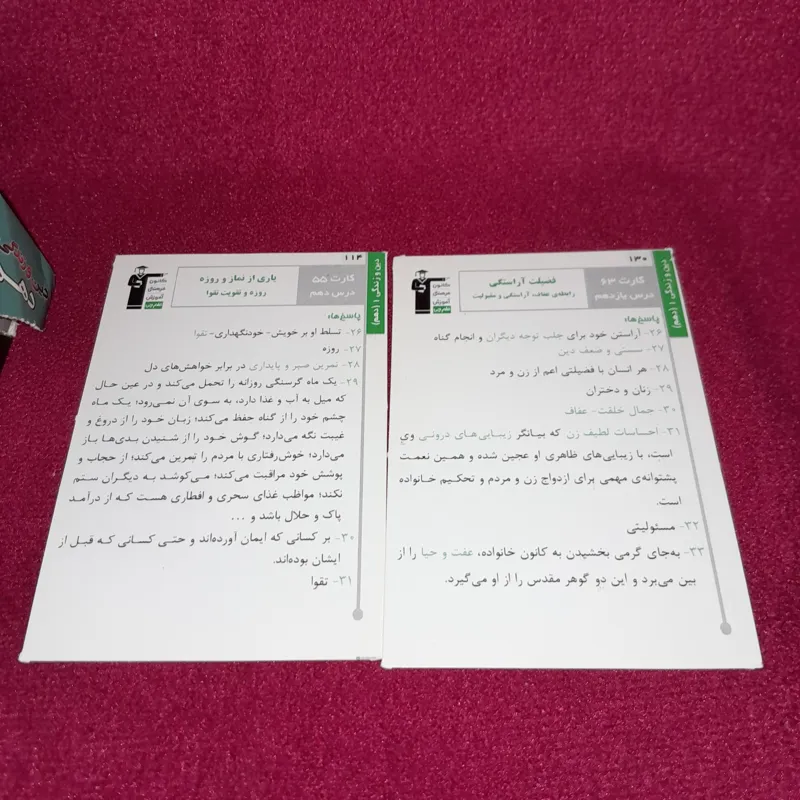 ۱۳۰
دین و زندگی ۱ (دهم)
کارت ۶۳
درس یازدهم
فضیلت آراستگی
رابطه‌ی عفاف، آراستگی و مقبولیت
کانون
فرهنگی
آموزش
پاسخ‌ها:
۲۶- آراستن خود برای جلب توجه دیگران و انجام گناه
۲۷- سستی و ضعف دین
۲۸- هر انسان با فضیلتی اعم از زن و مرد
۲۹- زنان و دختران
۳۰- جمال خلقت- عفاف
۳۱- احساسات لطیف زن که بیانگر زیبایی‌های درونی وی
است، با زیبایی‌های ظاهری او عجین شده و همین نعمت
پشتوانه‌ی مهمی برای ازدواج زن و مردم و تحکیم خانواده
است.
۳۲- مسئولیتی
۳۳- به‌جای گرمی بخشیدن به کانون خانواده، عفت و حیا را از
بین می‌برد و این دو گوهر مقدس را از او می‌گیرد.
۱۱۴
دین و زندگی ۱ (دهم)
کارت ۵۵
درس دهم
یاری از نماز و روزه
روزه و تقویت تقوا
کانون
فرهنگی
آموزش
پاسخ‌ها:
۲۶- تسلط او بر خویش- خودنگهداری- تقوا
۲۷- روزه
۲۸- تمرین صبر و پایداری در برابر خواهش‌های دل
۲۹- یک ماه گرسنگی روزانه را تحمل می‌کند و در عین حال
که میل به آب و غذا دارد، به سوی آن نمی‌رود؛ یک ماه
چشم خود را از گناه حفظ می‌کند؛ زبان خود را از دروغ و
غیبت نگه می‌دارد؛ گوش خود را از شنیدن بدی‌ها باز
می‌دارد؛ خوش‌رفتاری با مردم را تمرین می‌کند؛ از حجاب و
پوشش خود مراقبت می‌کند؛ می‌کوشد به دیگران ستم
نکند؛ مواظب غذای سحری و افطاری هست که از درآمد
پاک و حلال باشد و ...
۳۰- بر کسانی که ایمان آورده‌اند و حتی کسانی که قبل از
ایشان بوده‌اند.
۳۱- تقوا